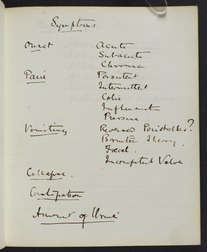 Symptoms
Onset Acute
Subacute
Chronic
Pain Persistent
Intermittent
Colic
Influence
Pressure
Vomiting Reversed Peristalsis?
Brinton Theory
Fæcal
Incompetent Valve
Collapse
Constipation
Amount of Urine